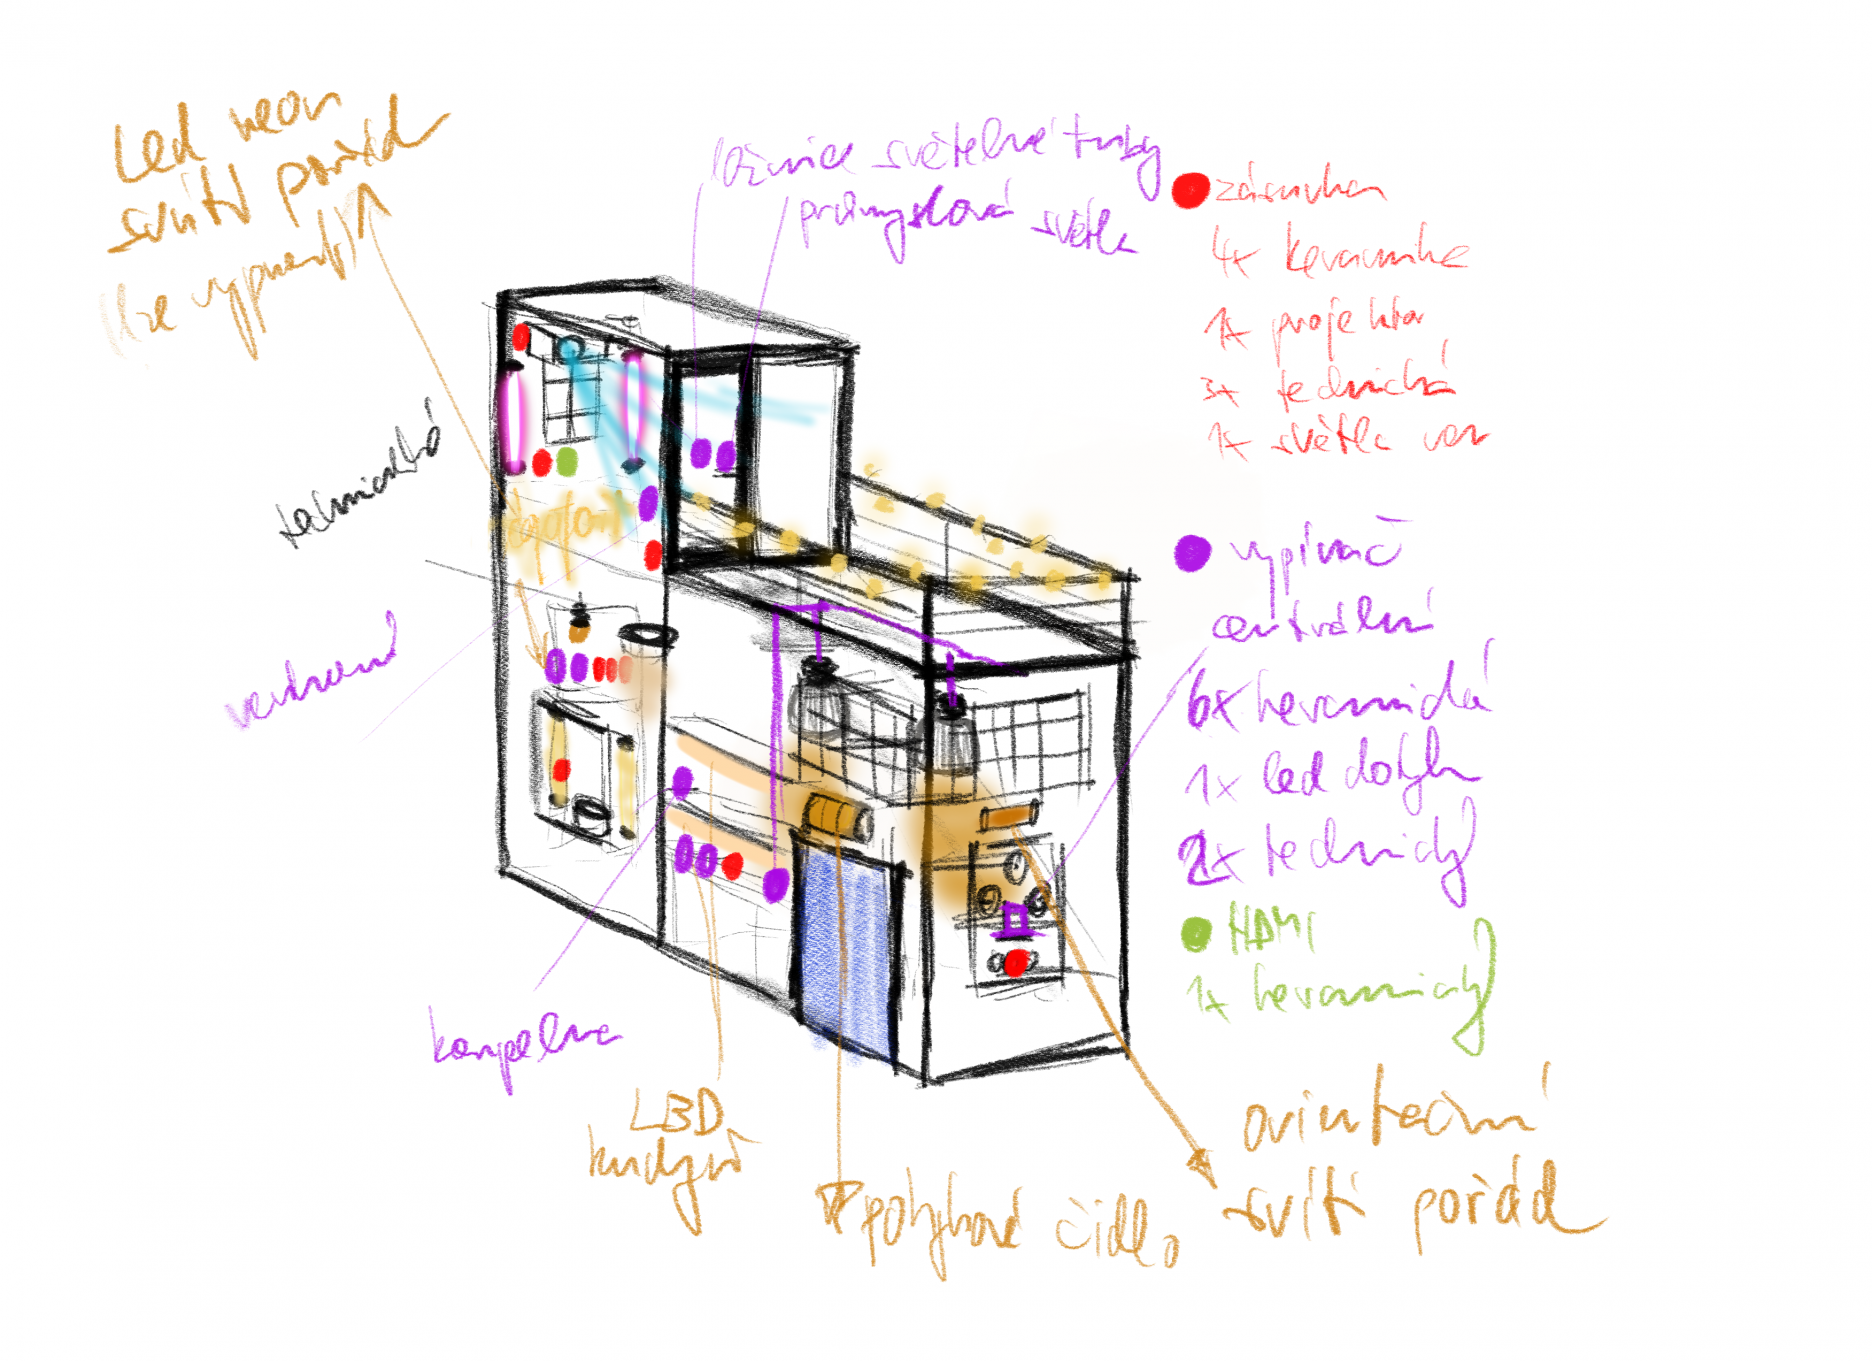 Led neon
svítí pořád
lze vypnout
ložnice světelné tuby
průmyslová světla
zásuvka
4x keramika
1x projektor
3x technická
1x světla ven
technická
venkovní
vypínač
centrální
6x keramická
1x led dotyk
2x technický
HDMI
1x keramický
koupelna
LED
kuchyň
pohybové čidlo
orientační
svítí pořád